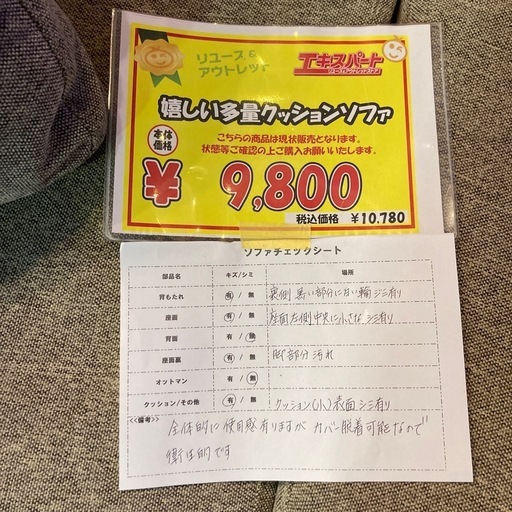 リユース &
アウトレット
エキスパート
嬉しい多量クッションソファ
こちらの商品は現状販売となります。
状態等ご確認の上ご購入お願いいたします。
本体
価格
¥ 9,800
税込価格 ¥10,780
ソファチェックシート
部品名 キズ/シミ 場所
背もたれ 有 / 無 裏側 黒い部分に白い輪ジミ有り
座面 有 / 無 座面左側中央に小さなシミ有り
背面 有 / 無
座面裏 有 / 無 脚部分 汚れ
オットマン 有 / 無
クッション/その他 有 / 無 クッション(小)表面シミ有り
<<備考>>
全体的に使用感有りますが カバー脱着可能なので
衛生的です